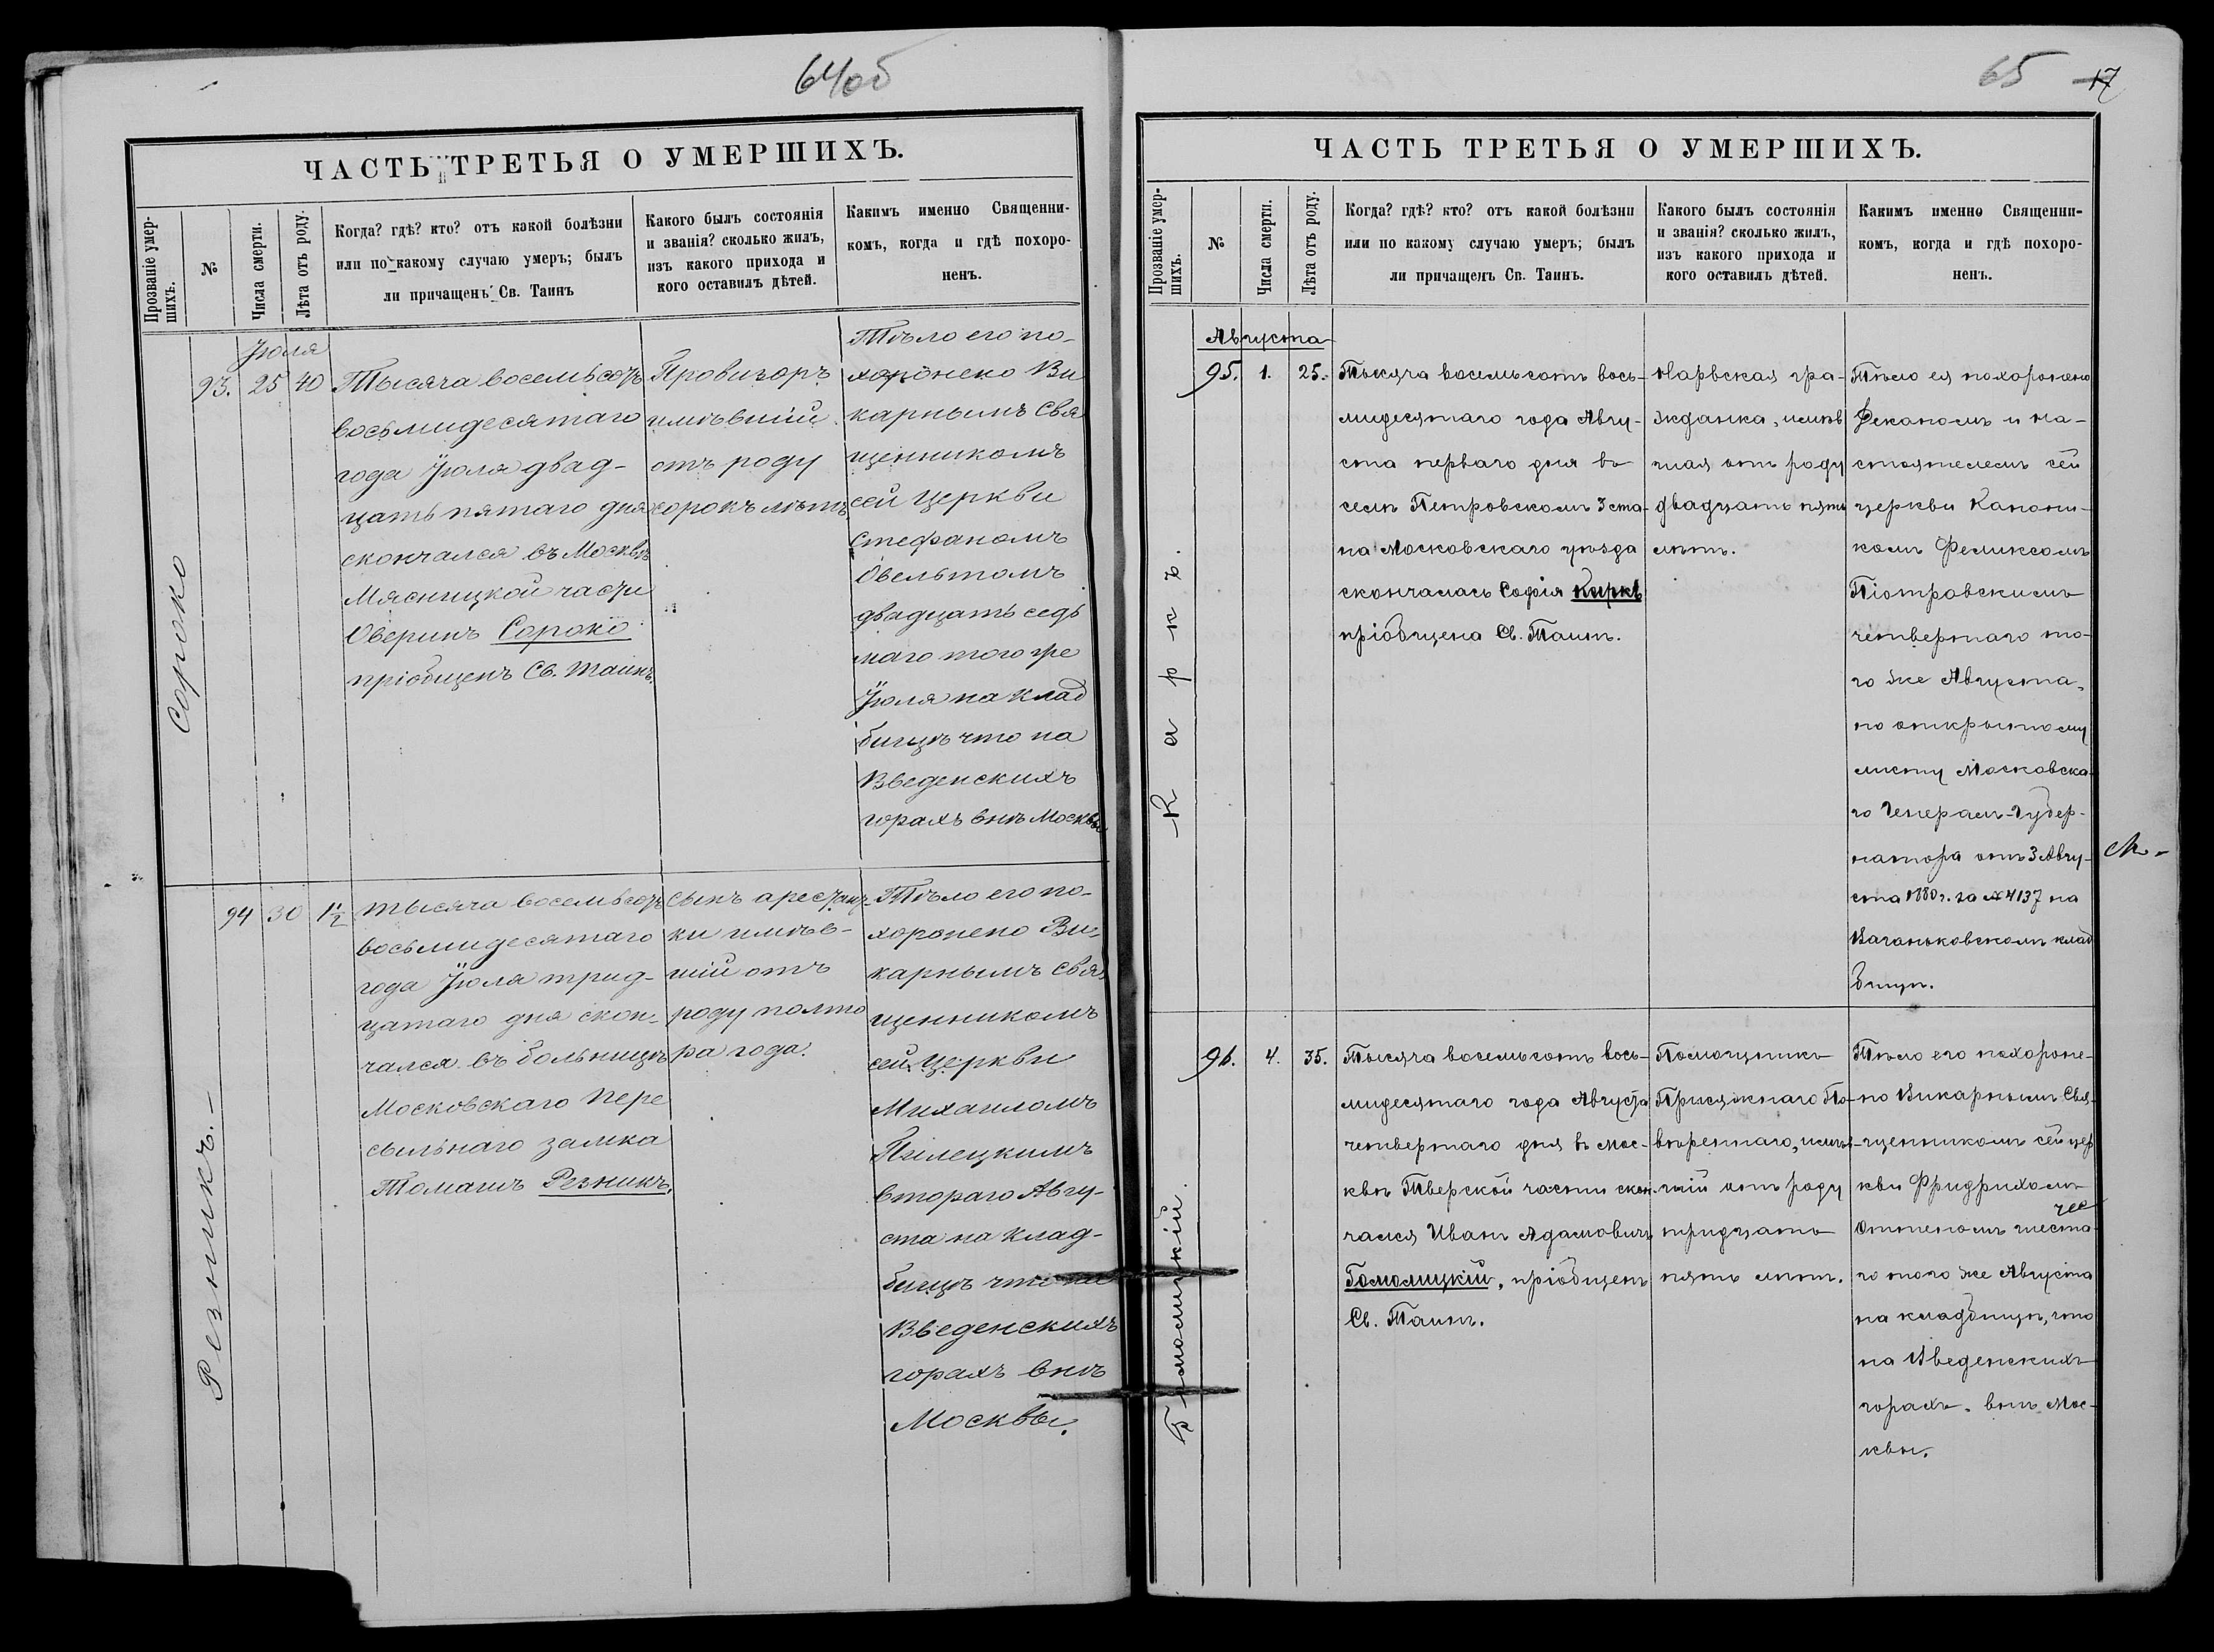 64об
ЧАСТЬ ТРЕТЬЯ О УМЕРШИХЪ.
Прозваніе умер-
шихъ.
№
Числа смерти.
Лѣта отъ роду.
Когда? гдѣ? кто? отъ какой болѣзни
или по какому случаю умеръ; былъ
ли причащенъ Св. Таинъ
Какого былъ состоянія
и званія? сколько жилъ,
изъ какого прихода и
кого оставилъ дѣтей.
Какимъ именно Священни-
комъ, когда и гдѣ похоро-
ненъ.
Сороко
Іюля
93. 25 40
Тысяча восемьсотъ
восьмидесятаго
года Іюля двад-
цать пятаго дня
скончался въ Москвѣ
Мясницкой части
Сороко
пріобщенъ Св. Таинъ.
Провизоръ
имѣвшій
отъ роду
сорокъ лѣтъ
Тѣло его по-
хоронено Ви
карнымъ Свя
щенникомъ
сей Церкви
Стефаномъ
Овельтомъ
двадцать седь
маго того же
Іюля на клад
бищѣ что на
Введенскихъ
горахъ внѣ Москвы
Резникъ.-
94 30 1½
Тысяча восемьсотъ
восьмидесятаго
года Іюля трид-
цатаго дня скон-
чался въ больницѣ
Московскаго Пере
сыльнаго замка
Томашъ Резникъ.
Сынъ арестант-
ки имѣв-
шій отъ
роду полто
ра года.
Тѣло его по-
хоронено Ви-
карнымъ Свя
щенникомъ
сей Церкви
Михаиломъ
Пилецкимъ
втораго Авгу-
ста на клад-
бищѣ что на
Введенскихъ
горахъ внѣ
Москвы.
65 17
ЧАСТЬ ТРЕТЬЯ О УМЕРШИХЪ.
Прозваніе умер-
шихъ.
№
Числа смерти.
Лѣта отъ роду.
Когда? гдѣ? кто? отъ какой болѣзни
или по какому случаю умеръ; былъ
ли причащенъ Св. Таинъ.
Какого былъ состоянія
и званія? сколько жилъ,
изъ какого прихода и
кого оставилъ дѣтей.
Какимъ именно Священни-
комъ, когда и гдѣ похоро-
ненъ.
Каркъ.
Августа
95. 1. 25.
Тысяча восемьсотъ вось-
мидесятаго года Авгу-
ста перваго дня въ
селѣ Петровскомъ 3 ста-
на Московскаго уѣзда
скончалась Софія Каркъ
пріобщена Св. Таинъ.
Нарвская гра-
жданка, имѣв
шая отъ роду
двадцать пять
лѣтъ.
Тѣло ея похоронено
Деканомъ и на-
стоятелемъ сей
церкви Канони-
комъ Феликсомъ
Піотровскимъ
четвертаго то-
го же Августа,
по открытому
листу Московска-
го Генералъ-Губер-
натора отъ 3 Авгу-
ста 1880 г. за № 4137 на
Ваганьковскомъ клад
бищѣ.
96. 4. 35.
Тысяча восемьсотъ вось-
мидесятаго года Августа
четвертаго дня въ Мос-
квѣ Тверской части скон-
чался Иванъ Адамовичъ
Гомолицкій, пріобщенъ
Св. Таинъ.
Помощникъ
Присяжнаго По-
вѣреннаго, имѣв-
шій отъ роду
тридцать
пять лѣтъ.
Тѣло его похороне-
но Викарнымъ Свя-
щенникомъ сей цер
кви Фридрихомъ
Оттеномъ шеста-
го того же Августа
на кладбищѣ, что
на Введенскихъ
горахъ, внѣ Мос-
квы.